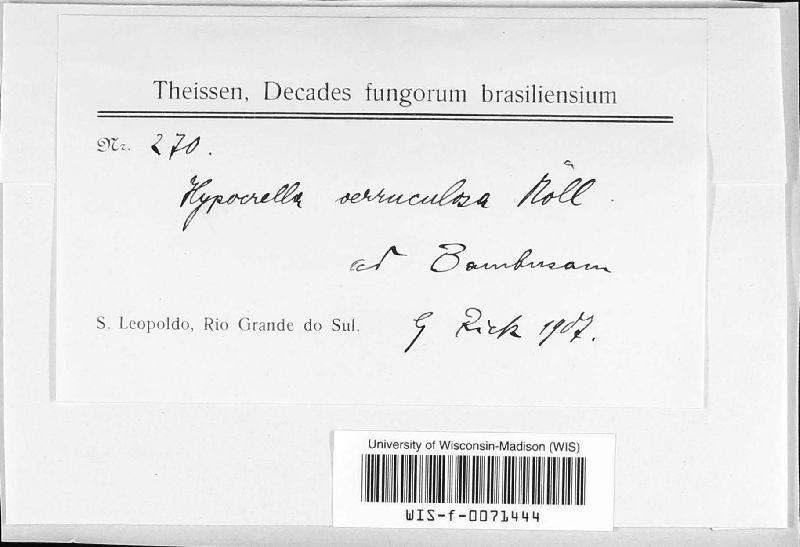 Theissen, Decades fungorum brasiliensium
Nr. 270.
Hypocrella verruculosa Möll
ad Bambusam
S. Leopoldo, Rio Grande do Sul. G Rick 1907.
University of Wisconsin-Madison (WIS)
WIS-f-0071444